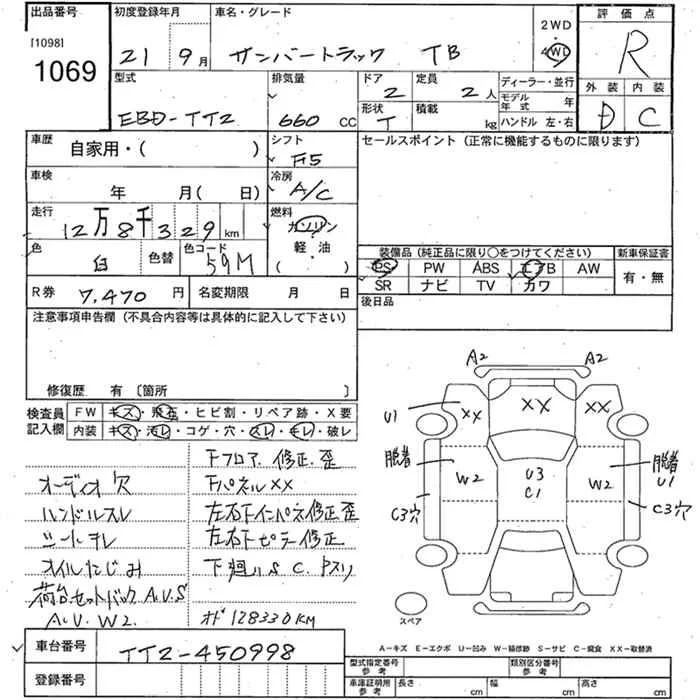 出品番号 初度登録年月 車名・グレード 2WD 評価点
[1098] 21 9月 サンバートラック TB 4WD R
1069
型式 排気量 ドア 定員 ディーラー・並行 外装 内装
EBD-TT2 660 CC 2 2人 モデル年式 年 D C
形状 T 積載 kg ハンドル 左・右
車歴 自家用・( ) シフト F5 セールスポイント (正常に機能するものに限ります)
車検 年 月( 日) 冷房 A/C
走行 12万8千329km 燃料 ガソリン
軽・油
( )
色 白 色替 色コード 59M
装備品 (純正品に限り○をつけてください) 新車保証書
PS PW ABS エアB AW 有・無
SR ナビ TV カワ
R券 7,470円 名変期限 月 日 後日品
注意事項申告欄 (不具合内容等は具体的に記入して下さい)
修復歴 有 〔箇所 〕
検査員記入欄 FW キズ・飛石・ヒビ割・リペア跡・X要
内装 キズ・汚レ・コゲ・穴・スレ・キレ・破レ
Fフロア 修正.歪
オーディオ欠 Fパネル XX
ハンドルスレ 左右Fインパネ修正歪
シートキレ 左右Fピラー修正
オイルにじみ 下廻りS C.
荷台.セットバックA.U.S
A.U.W2. オド128330KM
A2 A2
XX XX XX
U1
脱着 W2 U3 C1 W2 脱着 U1
C3穴 C3穴
スペア
A-キズ E-エクボ U-凹み W-補修跡 S-サビ C-腐食 XX-取替済
車台番号 TT2-450998
登録番号
型式指定番号 参考 類別区分番号 参考
車庫証明用 参考 長さ cm 幅 cm 高さ cm